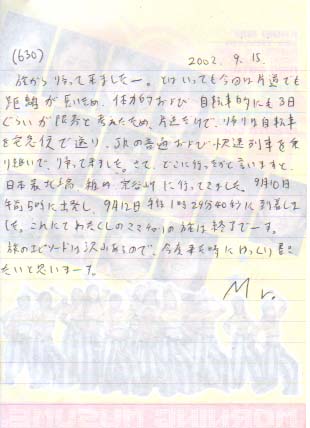 (630)
2002. 9. 15.
旅から帰って来ましたー。とはいっても今回は片道でも
距離が長いため、体力的および自転車的にも3日
ぐらいが限界と考えたため、片道だけで、帰りは自転車
を宅急便で送り、JRの普通および快速列車を乗
り継いで、帰って来ました。さて、どこに行ったかと言いますと、
日本最北端 稚内 宗谷岬に行ってきました。9月10日
午前5時に出発し、9月12日午後1時29分40秒に到着しま
した。これにてわたくしの の旅は終了でーす。
旅のエピソードは沢山あるので、今度 時にゆっくり書き
たいと思いまーす。
Mr.
MORNING MUSUME